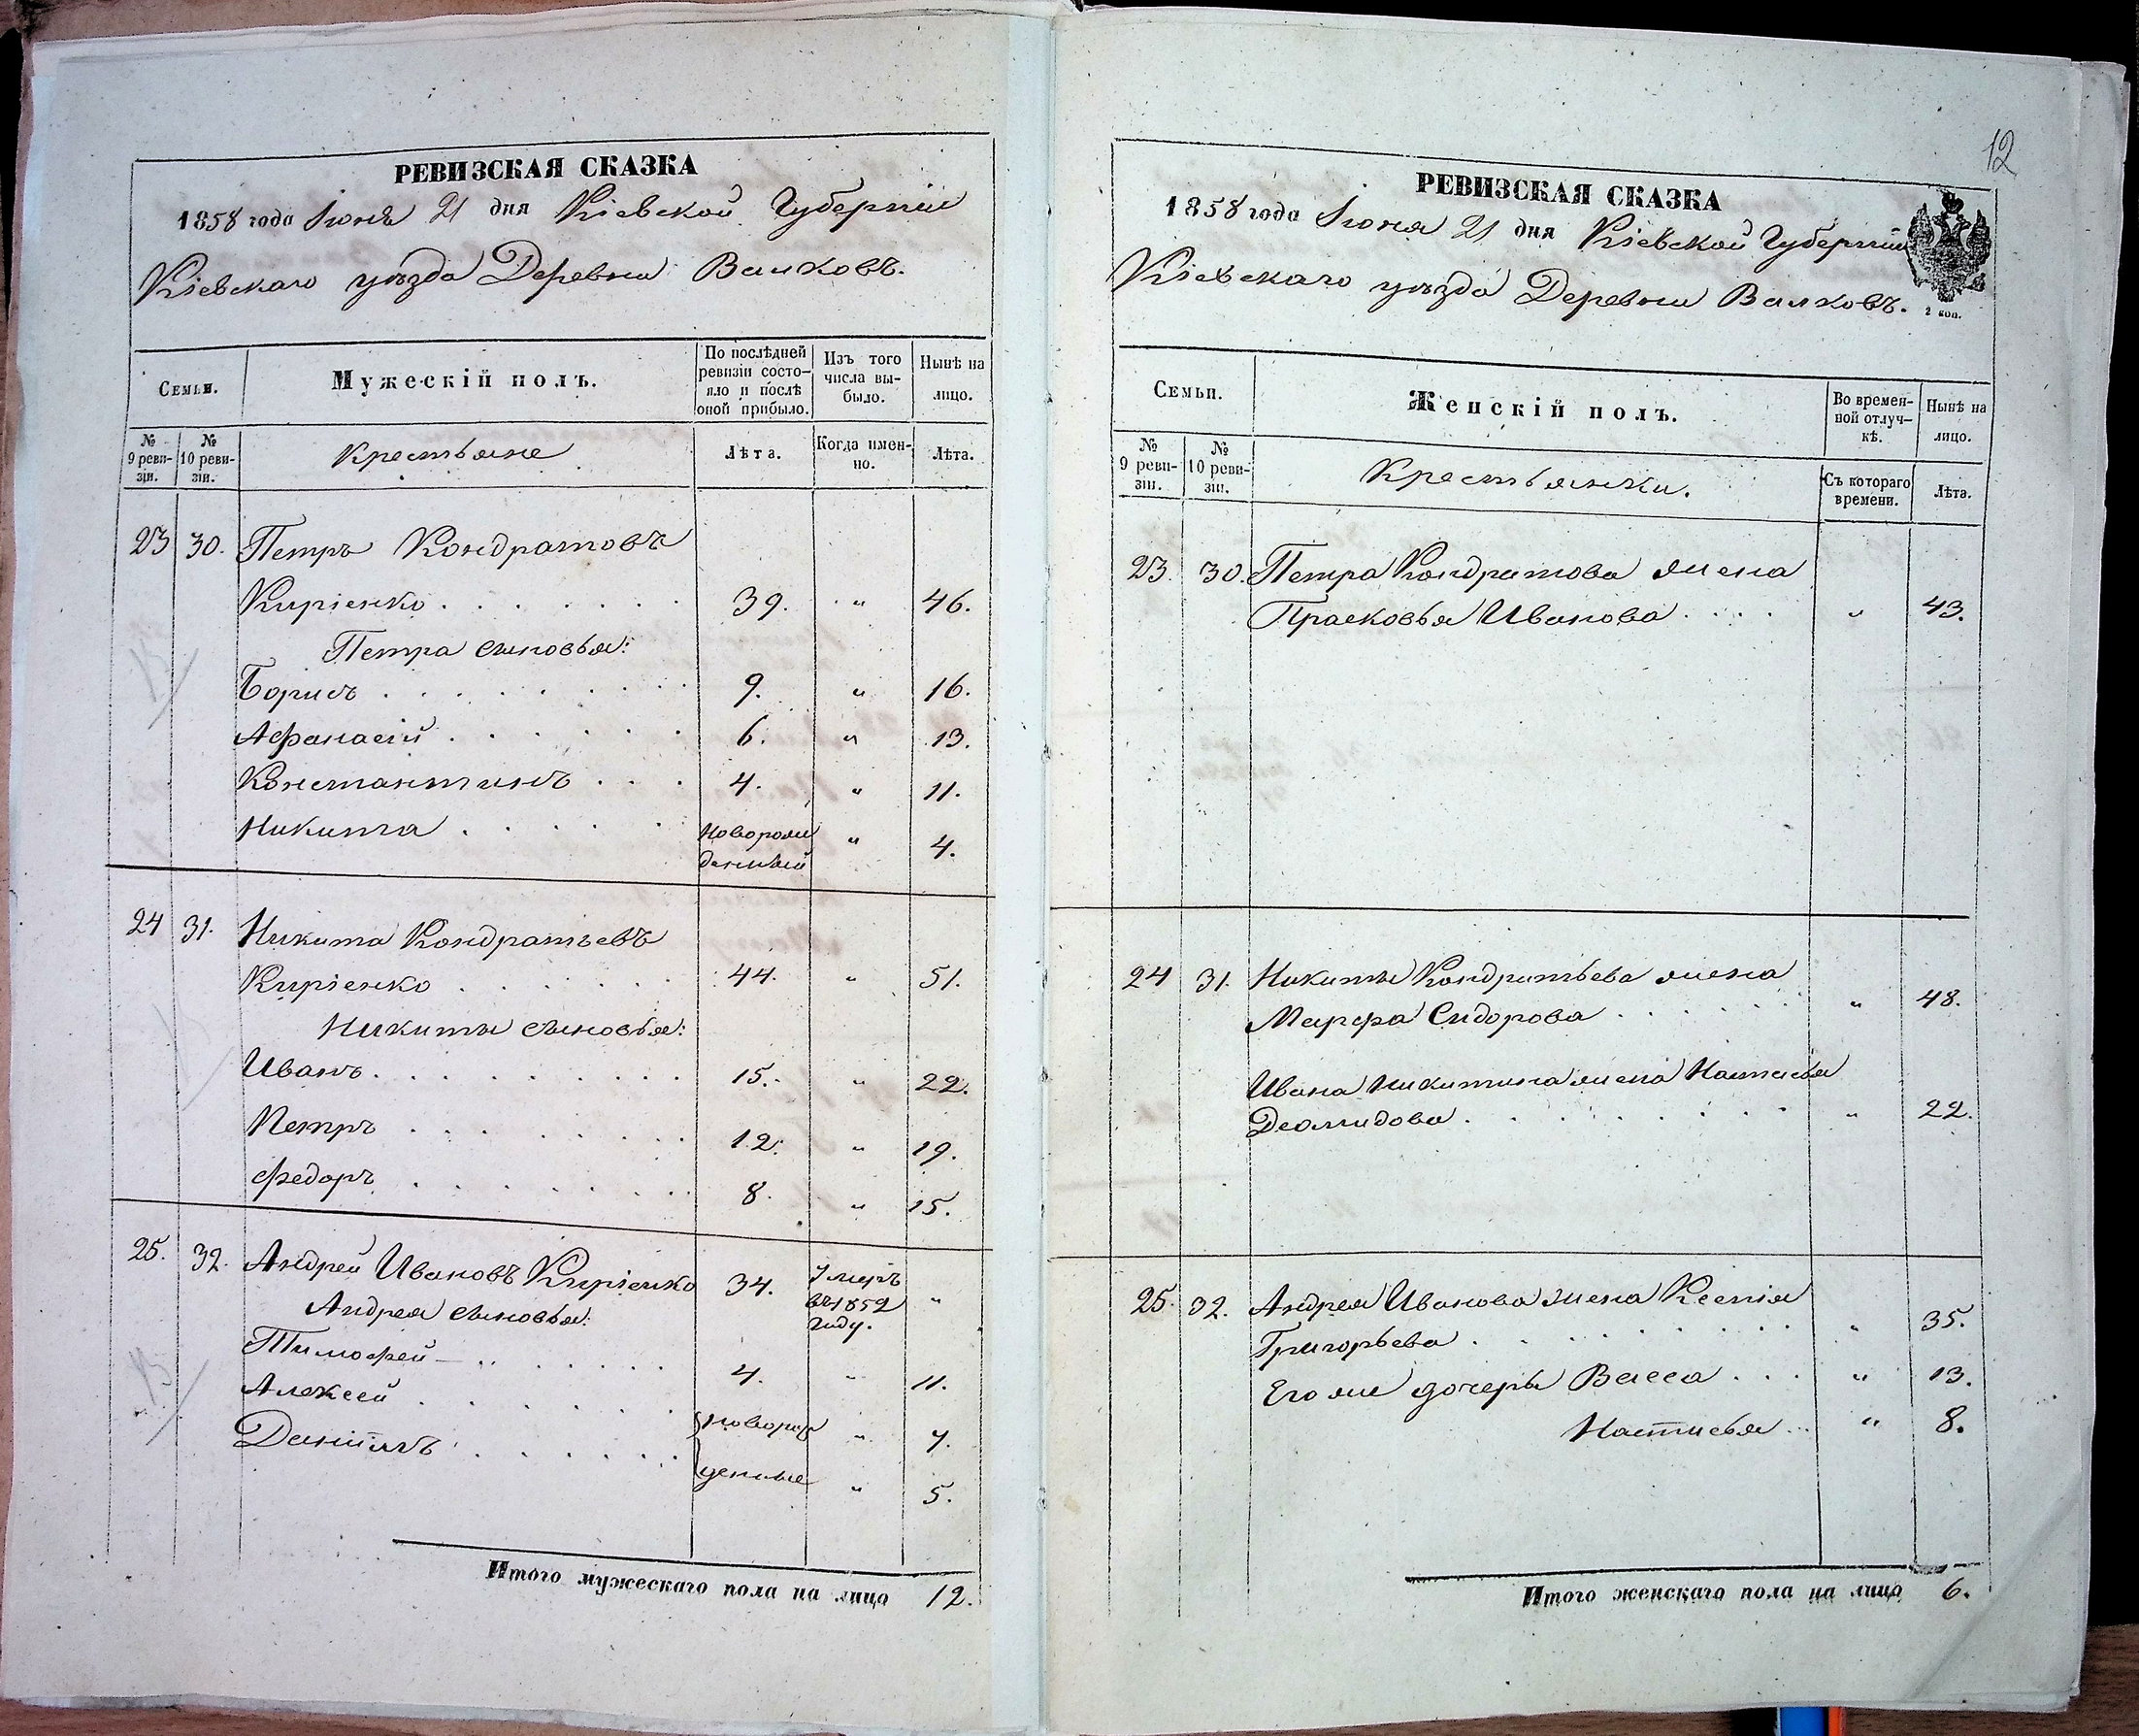 РЕВИЗСКАЯ СКАЗКА
1858 года Іюня 21 дня Кіевской Губерніи
Кіевскаго уѣзда Деревни Валковъ.
Семьи.
Мужескій полъ.
По послѣдней ревизіи состояло и послѣ оной прибыло.
Изъ того числа выбыло.
Нынѣ на лицо.
№ 9 ревизіи.
№ 10 ревизіи.
Крестьяне
Лѣта.
Когда именно.
Лѣта.
23 30. Петръ Кондратовъ
Киріенко . . . . . . . 39. " 46.
Петра сыновья:
Борисъ . . . . . . . . 9. " 16.
Афанасій . . . . . . 6. " 13.
Константинъ . . . 4. " 11.
Никита . . . . . новорож " 4.
денный
24 31. Никита Кондратьевъ
Киріенко . . . . . . 44. " 51.
Никиты сыновья:
Иванъ . . . . . . . . . 15. " 22.
Петръ . . . . . . . . 12. " 19.
Федоръ . . . . . . . . 8. " 15.
25. 32. Андрей Ивановъ Киріенко 34. Умеръ "
въ 1852
году.
Андрея сыновья:
Тимофей . . . . . . 4. " 11.
Алексей . . . . . . новорож " 7.
Даніилъ . . . . . . денные " 5.
Итого мужескаго пола на лицо 12.
12
РЕВИЗСКАЯ СКАЗКА
1858 года Іюня 21 дня Кіевской Губерніи
Кіевскаго уѣзда Деревни Валковъ.
2 коп.
Семьи.
Женскій полъ.
Во временной отлучкѣ.
Нынѣ на лицо.
№ 9 ревизіи.
№ 10 ревизіи.
Крестьянки.
Съ котораго времени.
Лѣта.
23. 30. Петра Кондратова жена
Прасковья Иванова . . . . " 43.
24 31. Никиты Кондратьева жена
Марфа Сидорова . . . . . . " 48.
Ивана Никитина жена Настасья
Деомидова . . . . . . . . " 22.
25. 32. Андрея Иванова жена Ксенія
Григорьева . . . . . . . . " 35.
Его же дочеры Васса . . . " 13.
Настасья . . " 8.
Итого женскаго пола на лицо 6.